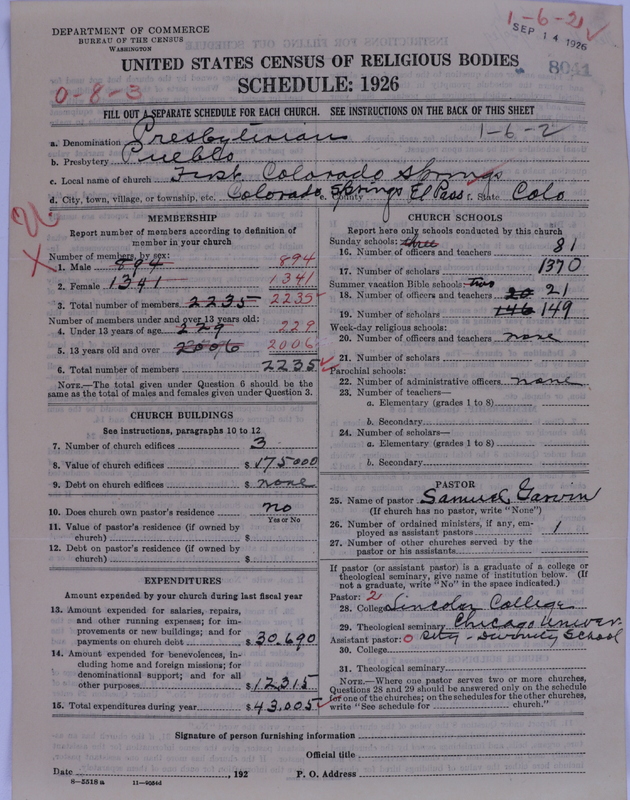 DEPARTMENT OF COMMERCE
BUREAU OF THE CENSUS
WASHINGTON
1-6-2
SEP 14 1926
8041
UNITED STATES CENSUS OF RELIGIOUS BODIES
SCHEDULE: 1926
0-8-3
FILL OUT A SEPARATE SCHEDULE FOR EACH CHURCH. SEE INSTRUCTIONS ON THE BACK OF THIS SHEET
1-6-2
a. Denomination Presbyterian
b. Presbytery Pueblo
c. Local name of church First Colorado Springs
d. City, town, village, or township, etc. Colorado Springs e. County El Paso f. State Colo
MEMBERSHIP
Report number of members according to definition of
member in your church
Number of members, by sex:
1. Male 894 894
2. Female 1341 1341
3. Total number of members 2235 2235
Number of members under and over 13 years old:
4. Under 13 years of age 229 229
5. 13 years old and over 2006 2006
6. Total number of members 2235
NOTE.—The total given under Question 6 should be
same as the total of males and females given under Question 3.
CHURCH BUILDINGS
See instructions, paragraphs 10 to 12
7. Number of church edifices 3
8. Value of church edifices $ 175000
9. Debt on church edifices $ none
10. Does church own pastor's residence no
Yes or No
11. Value of pastor's residence (if owned by
church) $
12. Debt on pastor's residence (if owned by
church) $
EXPENDITURES
Amount expended by your church during last fiscal year
13. Amount expended for salaries, repairs,
and other running expenses; for im-
provements or new buildings; and for
payments on church debt $ 30,690
14. Amount expended for benevolences, in-
cluding home and foreign missions; for
denominational support; and for all
other purposes $ 12315
15. Total expenditures during year $ 43,005
CHURCH SCHOOLS
Report here only schools conducted by this church
Sunday schools: three
16. Number of officers and teachers 81
17. Number of scholars 1370
Summer vacation Bible schools: two
18. Number of officers and teachers 20 21
19. Number of scholars 146 149
Week-day religious schools:
20. Number of officers and teachers none
21. Number of scholars
Parochial schools:
22. Number of administrative officers none
23. Number of teachers—
a. Elementary (grades 1 to 8)
b. Secondary
24. Number of scholars—
a. Elementary (grades 1 to 8)
b. Secondary
PASTOR
25. Name of pastor Samuel Garvin
(If church has no pastor, write "None")
26. Number of ordained ministers, if any, em-
ployed as assistant pastors 1
27. Number of other churches served by the
pastor or his assistants
If pastor (or assistant pastor) is a graduate of a college or
theological seminary, give name of institution below. (If
not a graduate, write "No" in the space indicated.)
Pastor: 2
28. College Lincoln College
29. Theological seminary Chicago Univer-
Assistant pastor: 0 sity - Divinity School
30. College
31. Theological seminary
NOTE.—Where one pastor serves two or more churches,
Questions 28 and 29 should be answered only on the schedule
for one of the churches; on the schedules for the other churches,
write "See schedule for church."
Signature of person furnishing information
Official title
Date , 192 P. O. Address
8-5518 a 11-9054d